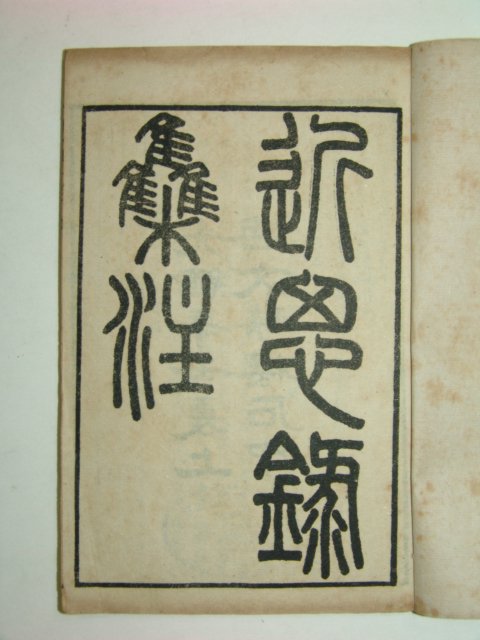 近思錄
雧注